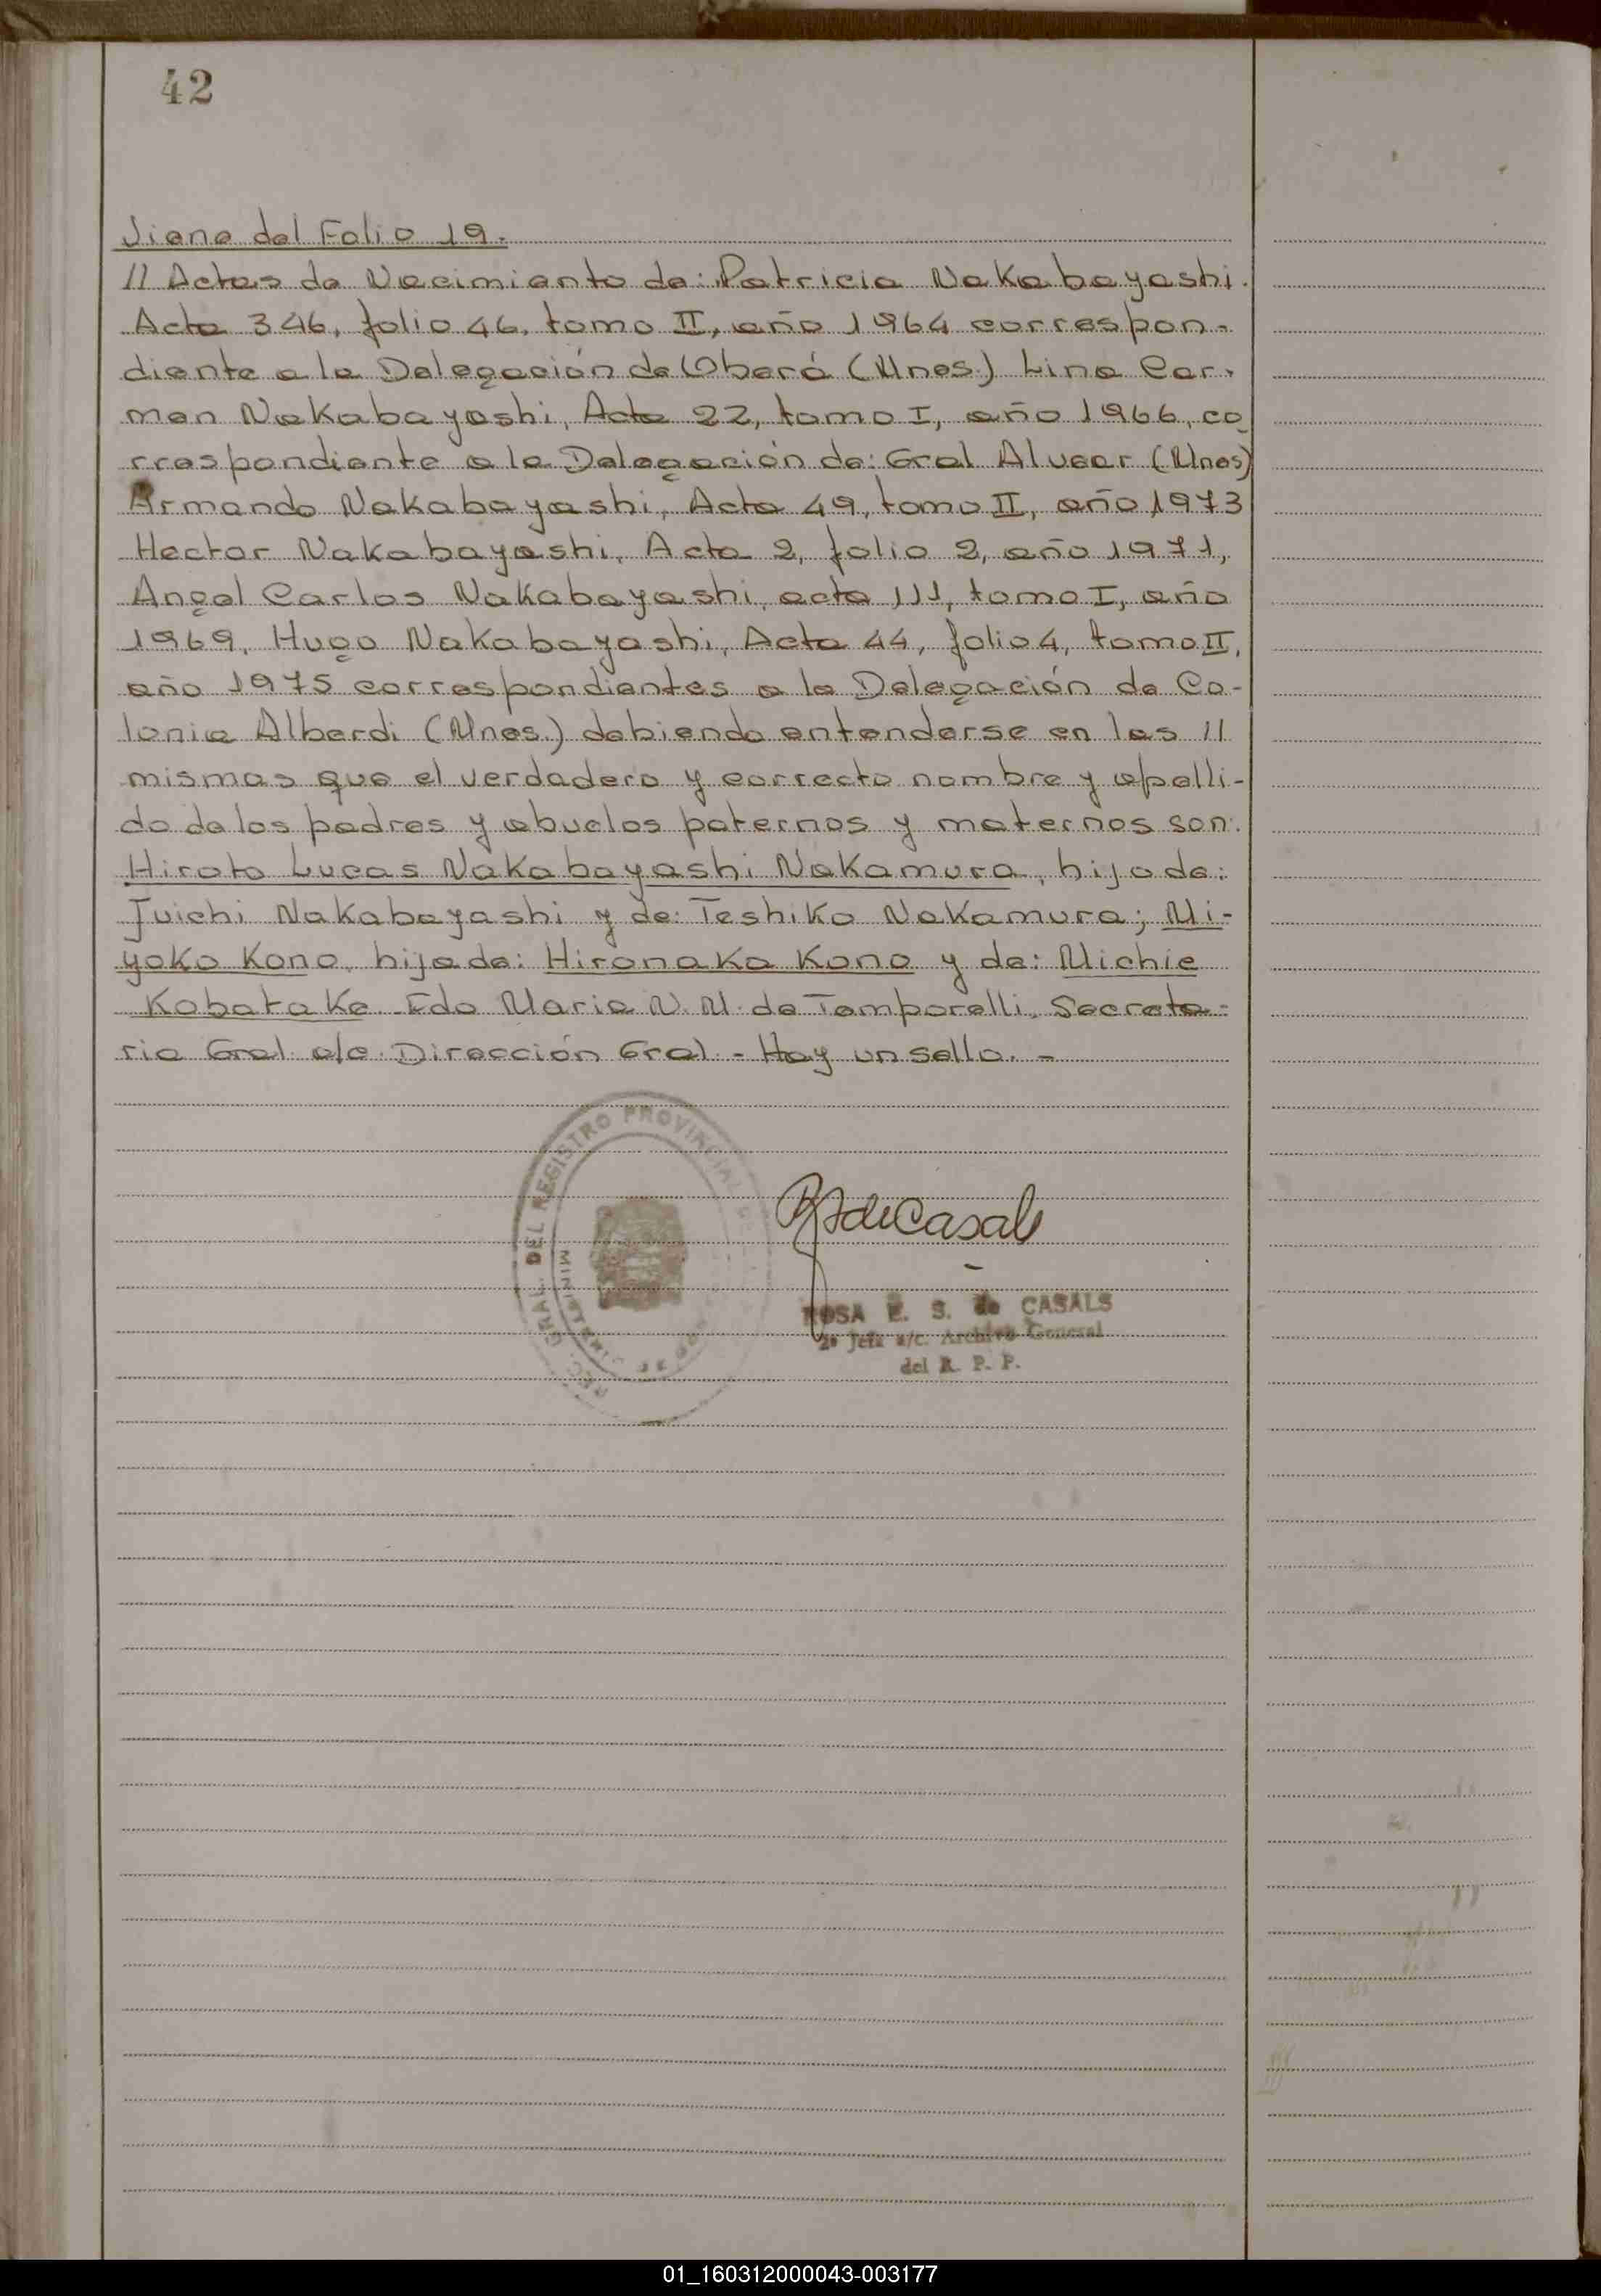 42
Viene del Folio 19.
// Actas de Nacimiento de: Patricia Nakabayashi.
Acta 346, folio 46, tomo II, año 1964 correspon-
diente a la Delegación de Oberá (Mnes.) Lina Car-
men Nakabayashi, Acta 22, tomo I, año 1966, co-
rrespondiente a la Delegación de: Gral Alvear (Mnes)
Armando Nakabayashi, Acta 49, tomo II, año 1973
Hector Nakabayashi, Acta 2, folio 2, año 1971,
Angel Carlos Nakabayashi, acta 111, tomo I, año
1969, Hugo Nakabayashi, Acta 44, folio 4, tomo II,
año 1975 correspondientes a la Delegación de Co-
lonia Alberdi (Mnes.) debiendo entenderse en las //
mismas que el verdadero y correcto nombre y apelli-
do de los padres y abuelos paternos y maternos son:
Hiroto Lucas Nakabayashi Nakamura, hijo de:
Juichi Nakabayashi y de: Teshiko Nakamura; Mi-
yoko Kono, hija de: Hironaka Kono y de: Michie
Kobatake Fdo Maria N. M. de Temporelli, Secreta-
ria Gral a/c Dirección Gral - Hay un sello. -
DEL REGISTRO PROVINCIAL
ROSA E. S. de CASALS
2º Jefe a/c. Archivo General
del R. P. P.
01_160312000043-003177